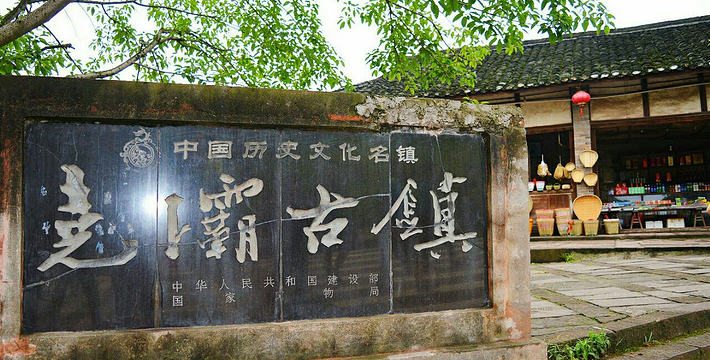 中国历史文化名镇
尧坝古镇
中华人民共和国建设部
国家 物局